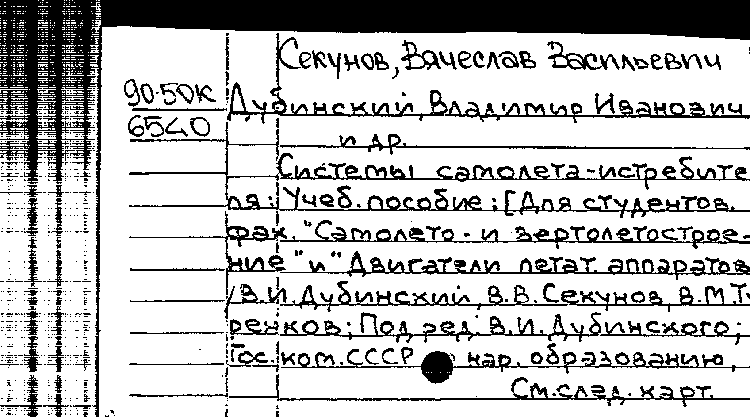 Секунов, Вячеслав Васильевич
90-50К Дубинский, Владимир Иванович
6540
и др.
Системы самолета-истребите
ля: Учеб. пособие: [Для студентов.
фак. "Самолето- и вертолетострое-
ние" и "Двигатели летат. аппаратов
/В.И. Дубинский, В.В. Секунов, В.М. Ту
ренков; Под ред. В.И. Дубинского;
Гос. ком. СССР нар. образованию,
См. след. карт.